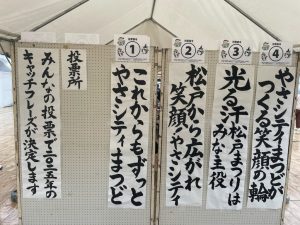 投票所
みんなの投票で二〇二五年の
キャッチフレーズが決定します
①
これからもずっと
やさシティまつど
②
松戸から広がれ
笑顔!やさシティ
③
光る汗松戸まつりは
みな主役
④
やさシティまつどが
つくる笑顔の輪